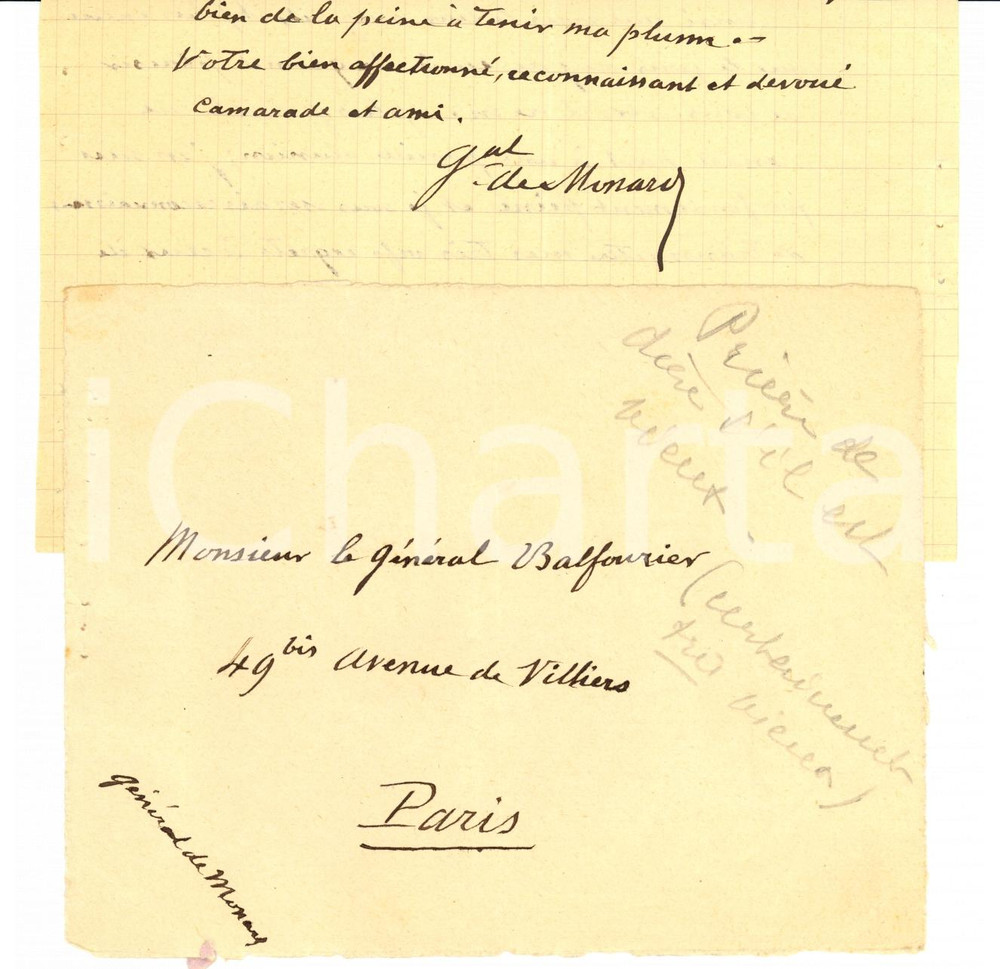 bien de la peine à tenir ma plume.—
Votre bien affectionné, reconnaissant et dévoué
camarade et ami.
Gal
de Monard
Prière de
dire s'il est
vieux -
(certainement
très vieux)
iCharta
Monsieur le général Balfourier
49 bis Avenue de Villiers
Paris
général de Monard